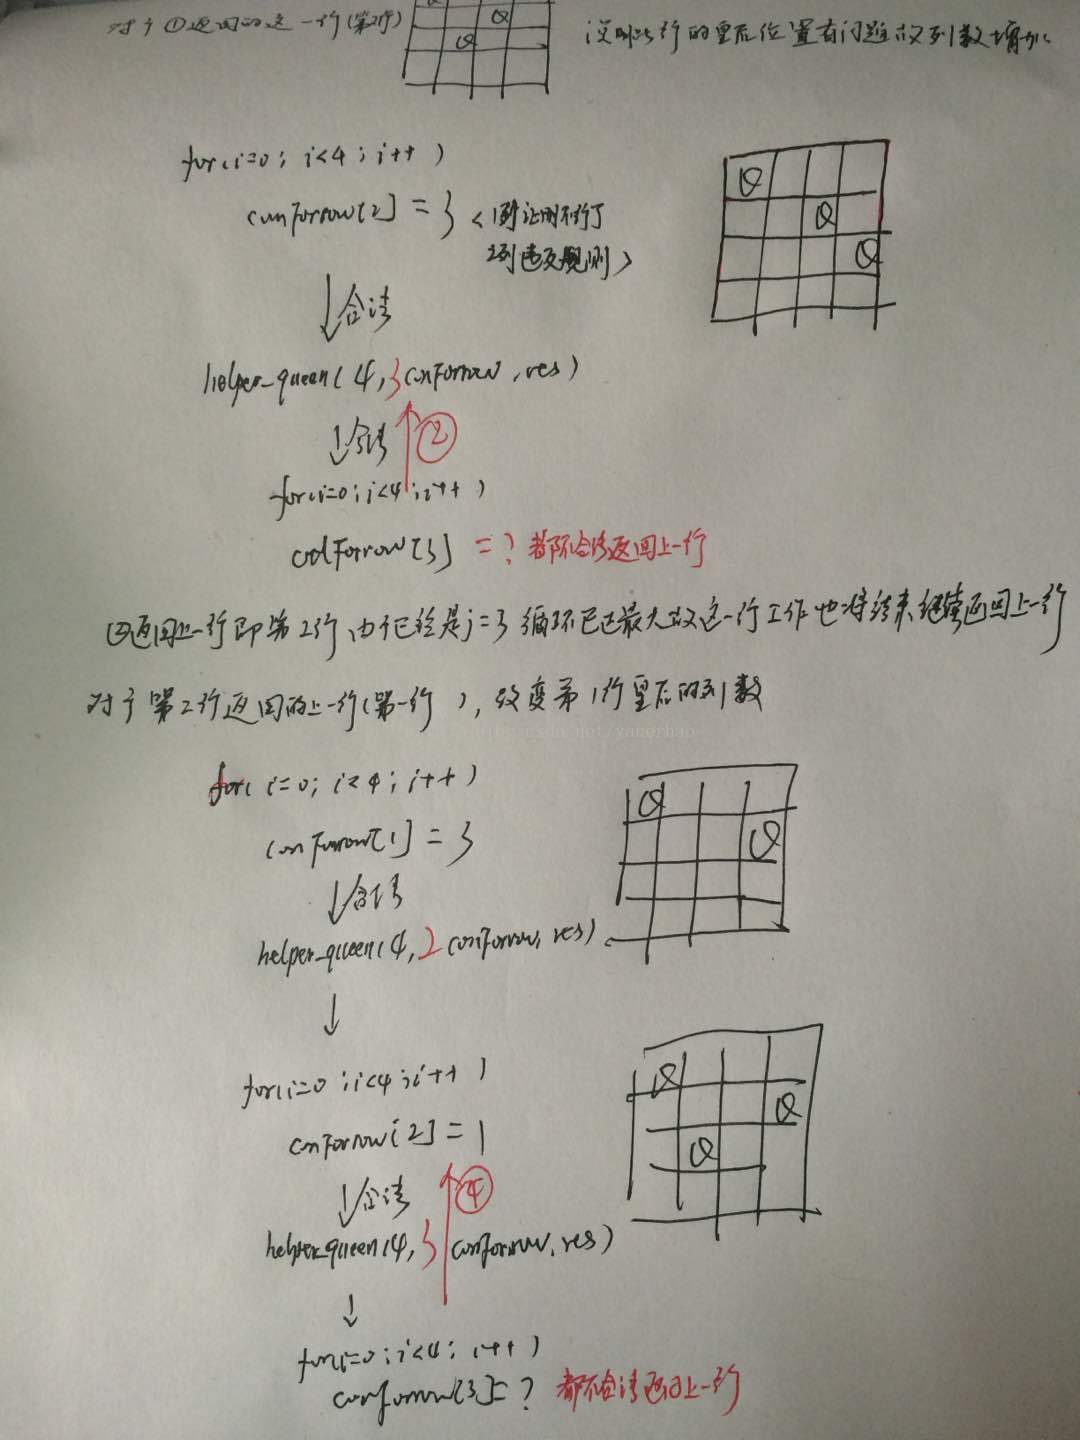 对于①返回的这一行(第2行)
Q
Q
说明此行的皇后位置有问题 故列数增加
for(i=0; i<4; i++)
conForrow[2] = 3 <1列证明不行了
2列违反规则>
Q
Q
Q
↓合法
helper_queen(4,3 conForrow,res)
↓合法 ②
for(i=0;i<4;i++)
colForrow[3] = ? 都不合法返回上一行
②返回上一行即第2行,由于已经是j=3 循环已达最大 故这一行工作也将结束 继续返回上一行
对于第2行返回的上一行(第一行),改变第1行皇后的列数
for(i=0; i<4; i++)
conForrow[1] = 3
Q
Q
↓合法
helper_queen(4,2 conForrow,res)
↓
for(i=0;i<4;i++)
conForrow[2] = 1
Q
Q
Q
↓合法 ④
helper_queen(4,3 conForrow,res)
↓
for(i=0;i<4; i++)
conforrow[3]=? 都不合法返回上一行